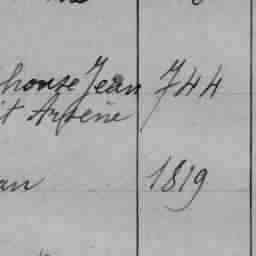 phonse Jean 744
it Arsène
an 1819